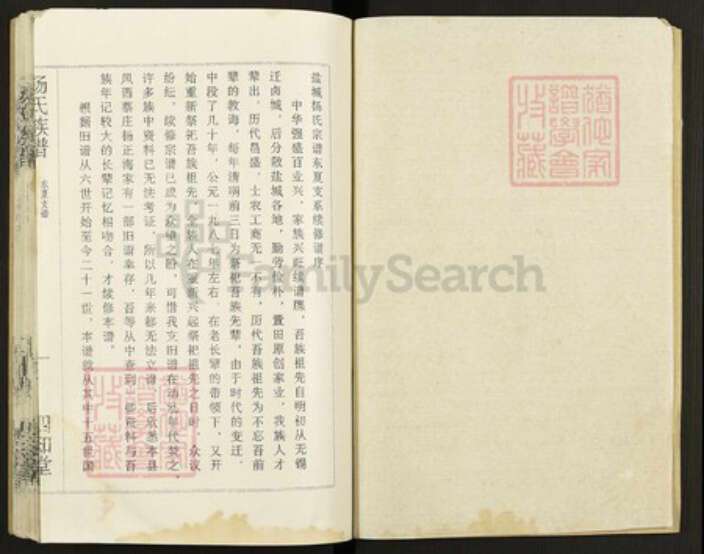 盐城杨氏宗谱东夏支系续修谱序
中华强盛百业兴，家族兴旺续谱牒。吾族祖先自明初从无锡
迁卤城，后分散盐城各地，勤劳俭朴，置田原创家业，我族人才
辈出，历代昌盛，士农工商无一不有，历代吾族祖先为不忘吾前
辈的教诲，每年清明前三日为祭祀吾族先辈，由于时代的变迁，
中段了几十年，公元一九八七年左右，在老长辈的带领下，又开
始重新祭祀吾族祖先，全族人在重新兴起祭祀祖先之日时，众议
纷纭，续修宗谱已成为众之，可惜我支旧谱在动乱年代焚之，
许多族中资料已无法考证，所以几年来都无法立谱，后欣悉本县
凤西蔡庄杨正海家有一部旧谱幸存，吾等从中查到一些资料与吾
族年记较大的长辈记忆相吻合，才续修本谱。
根据旧谱从六世开始至今二十一世，本谱就从其中十五世国
杨氏族谱
东夏支谱
四知堂
FamilySearch
收藏
谱学会
收藏